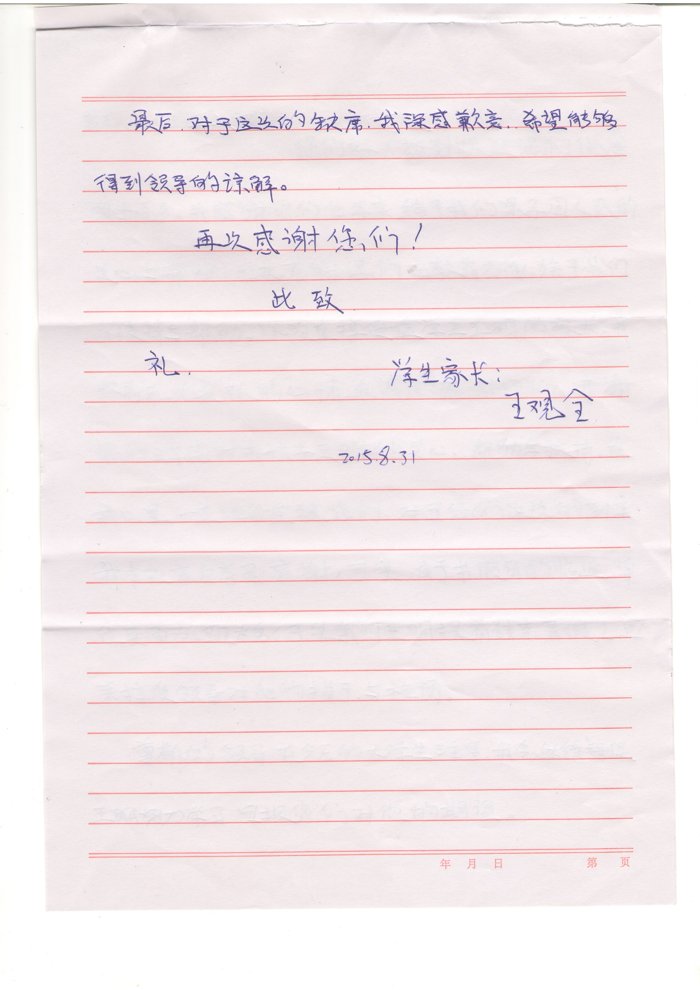 最后，对于这次的缺席，我深感歉意，希望能够
得到领导的谅解。
再次感谢您们！
此致
礼．
学生家长：
王观全
2015.8.31
年 月 日 第 页